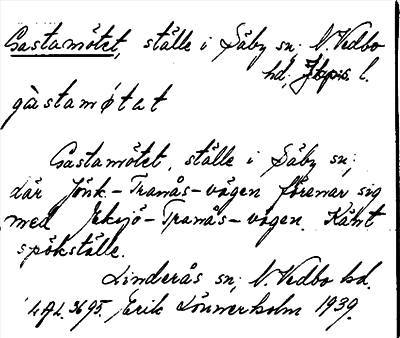 Gastamötet, ställe i Säby sn, N. Vedbo
hd, Jkpgs l.
gàstamǿtat
Gastamötet, ställe i Säby sn,
där Jönk-Tranås-vägen förenar sig
med Eksjö-Tranås-vägen. Känt
spökställe.
Linderås sn, N. Vedbo hd.
LAL. 3695. Erik Lönnerholm 1939.